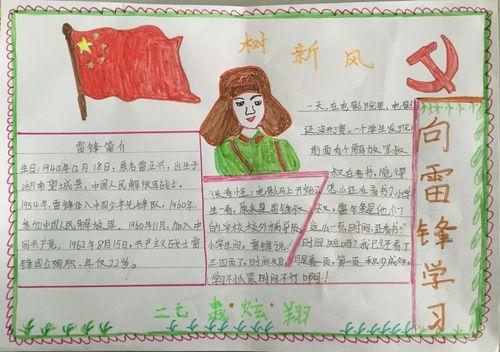 树新风
向雷锋学习
雷锋简介
生日:1940年12月18日,原名雷正兴,出生于
湖南望城县,中国人民解放军战士。
1954年,雷锋加入中国少年先锋队,1960年,
参加中国人民解放军。1960年11月,加入中
国共产党。1962年8月15日,共产主义战士雷
锋因公殉职,年仅22岁。
一天,在电影院里,电影
还没开演,一个学生发现
前面有个解放军叔
叔在看书,
很奇怪,电影马上开始了
怎么还在看书?小学
生一看,原来是雷锋叔叔,雷锋是他们
的学校校外辅导员。这么一点时间,还看书?
小学生问。雷锋说:时间短吗?我已看了
三四页了。时间
看一页,算一页,积少成多。
学习不抓紧时间不行啊!
二七
炫翔